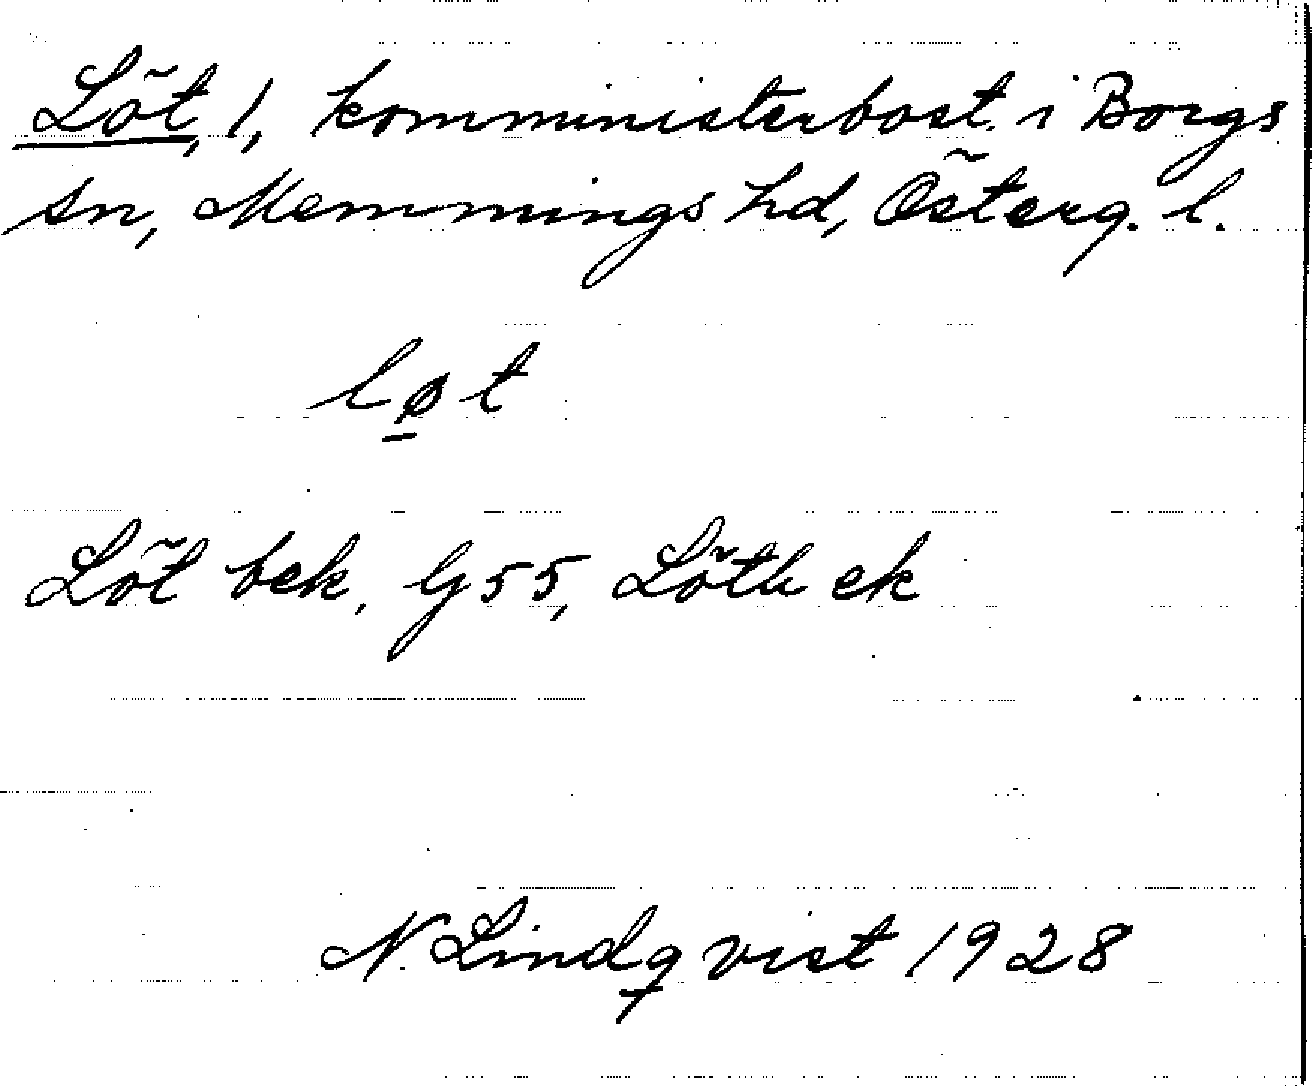 Löt, 1, komministerbost. i Borgs
sn, Memmings hd, Österg. l.
lø̱t
Löt bek, G55, Lötb ek
N. Lindqvist 1928